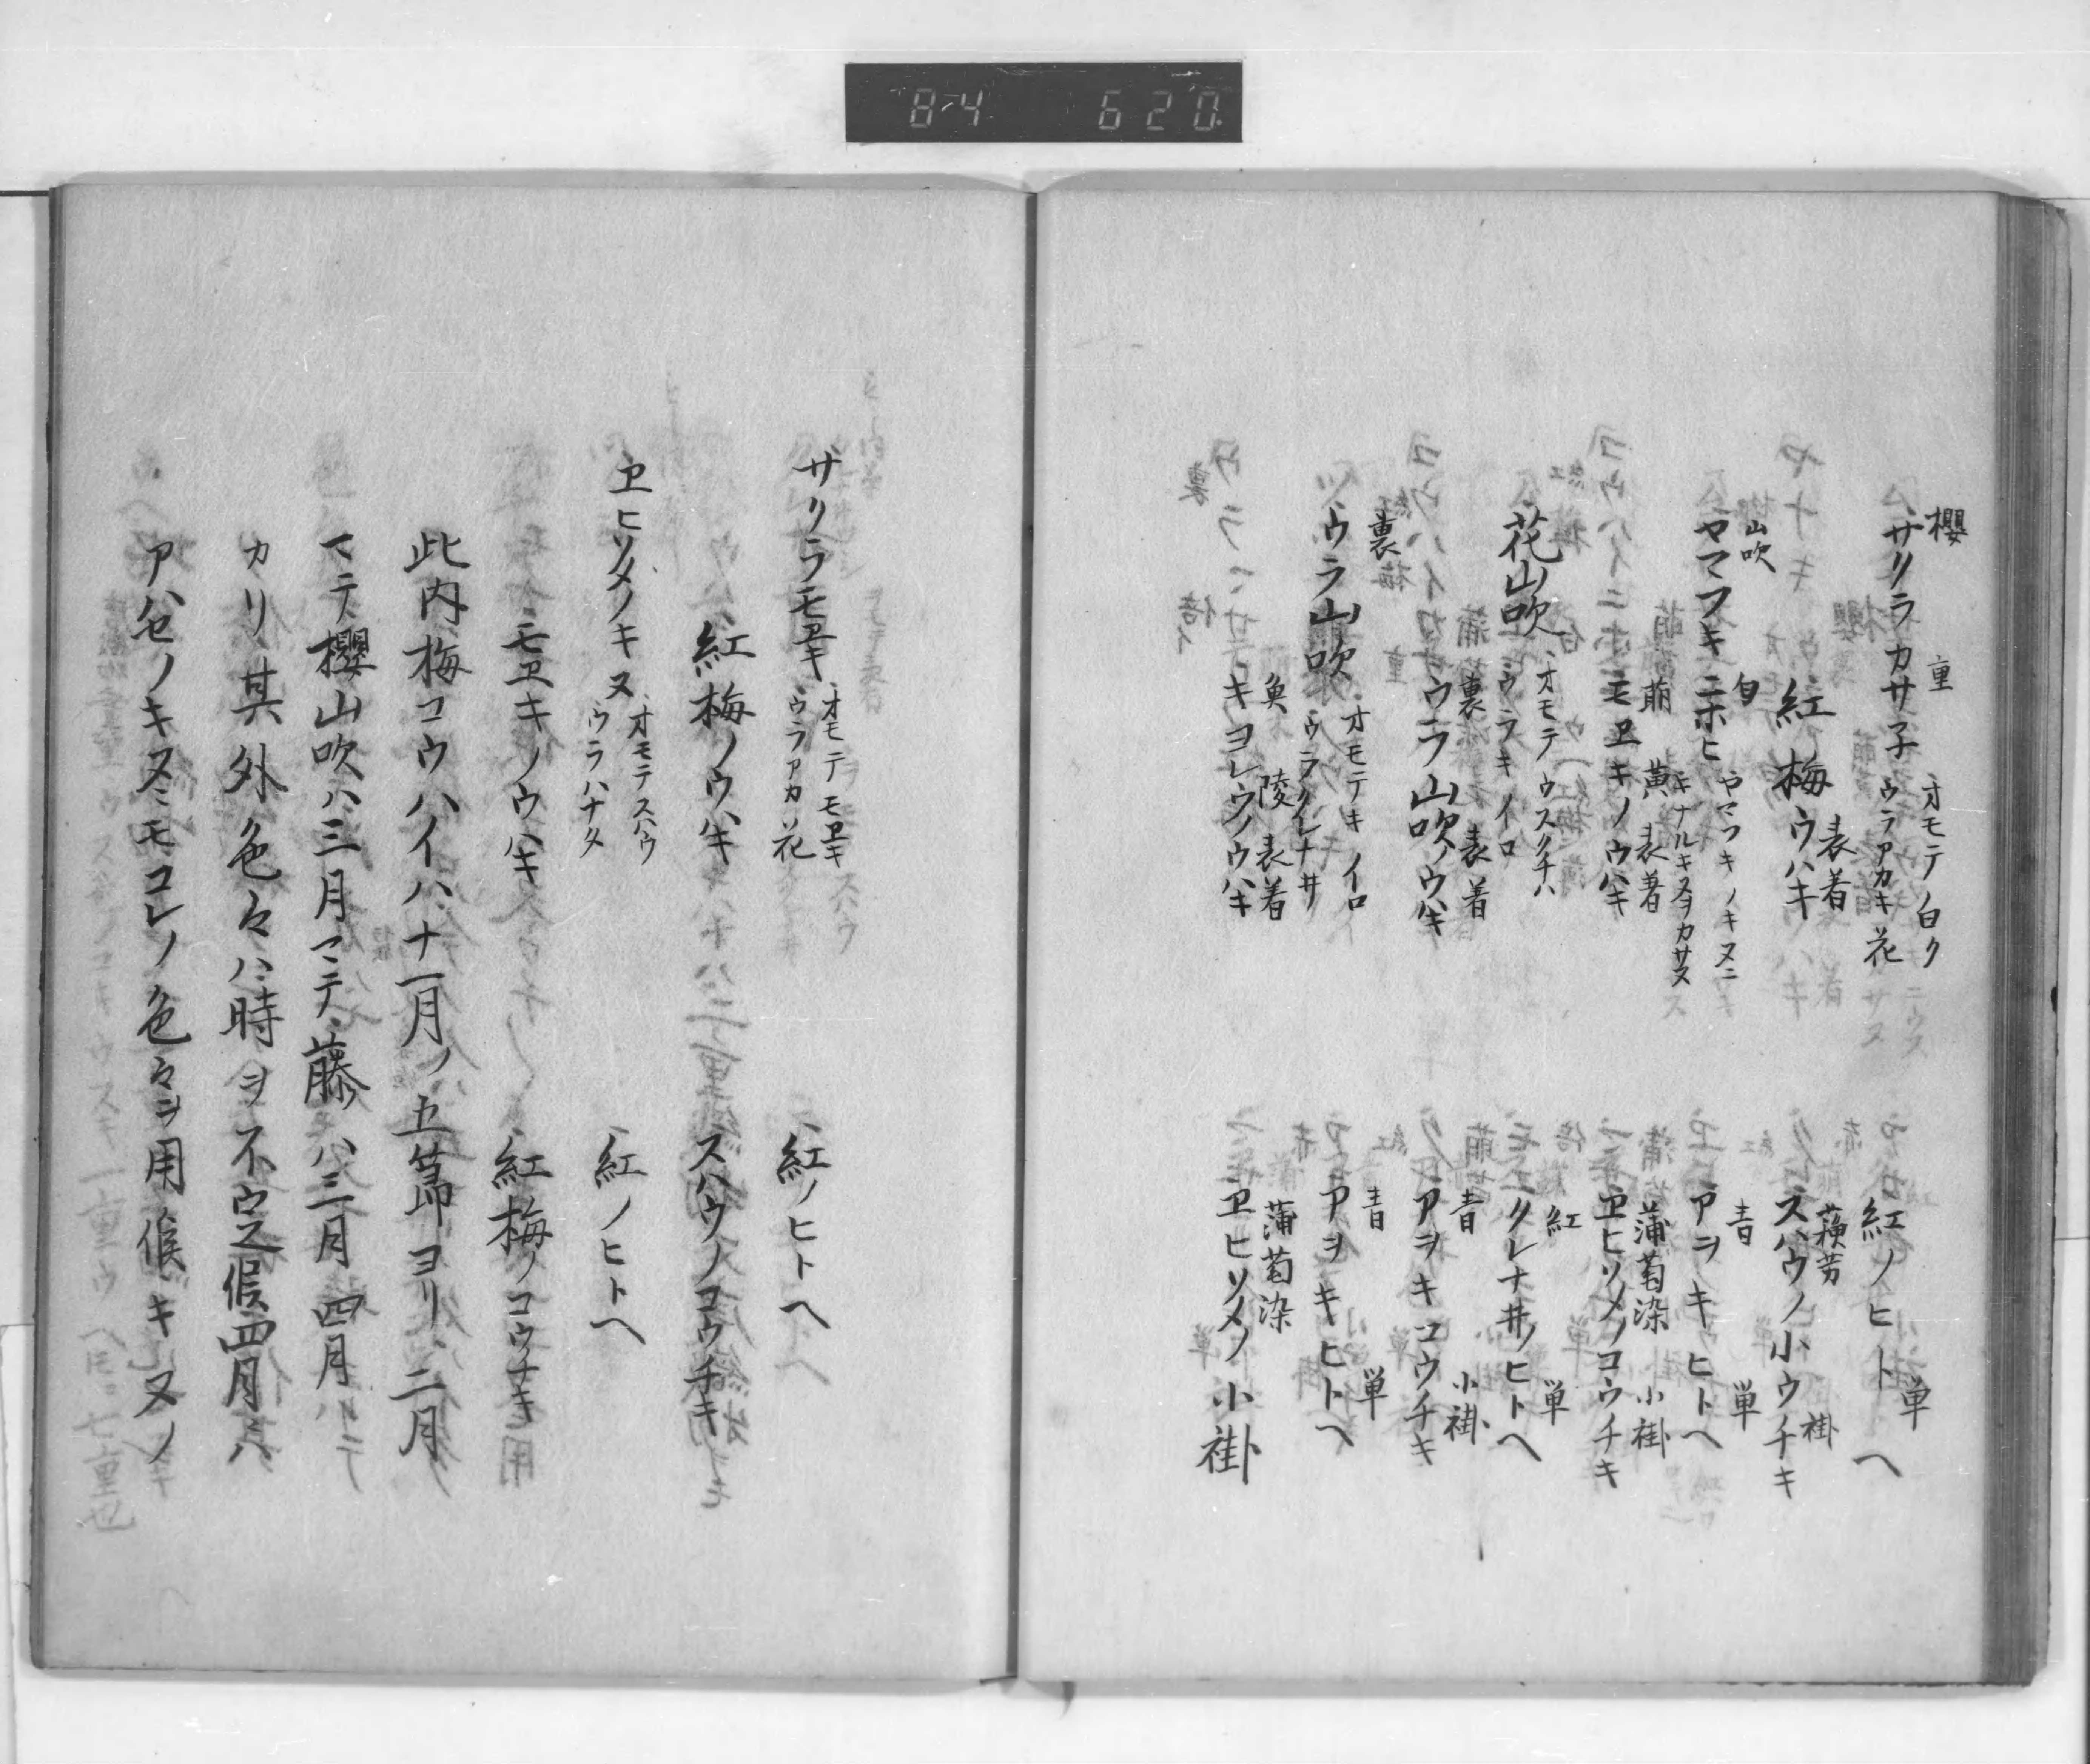 84 620
櫻 重
サクラカサ子 オモテ白ク
ウラアカキ花
紅ノヒトヘ 単
表着
紅梅ウハキ
蘓芳 褂
スハウノ小ウチキ
山吹 匂
ヤマフキニホヒ ヤマフキノキヌニ
キナルキヌヲカサヌ
青 単
アヲキヒトヘ
萠黄 表着
モヱキノウハキ
蒲萄染 小褂
ヱヒソメノコウチキ
花山吹 オモテウスクチハ
ウラキイロ
紅 単
クレナ井ノヒトヘ
裏 表着
ウラ山吹ノウハキ
青 小褂
アヲキコウチキ
裏
ウラ山吹 オモテキイロ
ウラクレナ井
青 単
アヲキヒトヘ
魚陵 表着
キヨレウノウハキ
蒲萄染
ヱヒソメノ小褂
サクラモヱキ オモテモヱキ
ウラアカ花
紅ノヒトヘ
紅梅ノウハキ
スハウノコウチキ
ヱヒソメノキヌ オモテスハウ
ウラハナタ
紅ノヒトヘ
モヱキノウハキ
紅梅ノコウチキ
此内梅コウハイハ十一月ノ五節ヨリ二月
マテ櫻山吹ハ三月マテ藤ハ三月四月ハ
カリ其外色々ハ時ヲ不定候四月ハ
アハセノキヌニモコレノ色々ヲ用候キヌノ